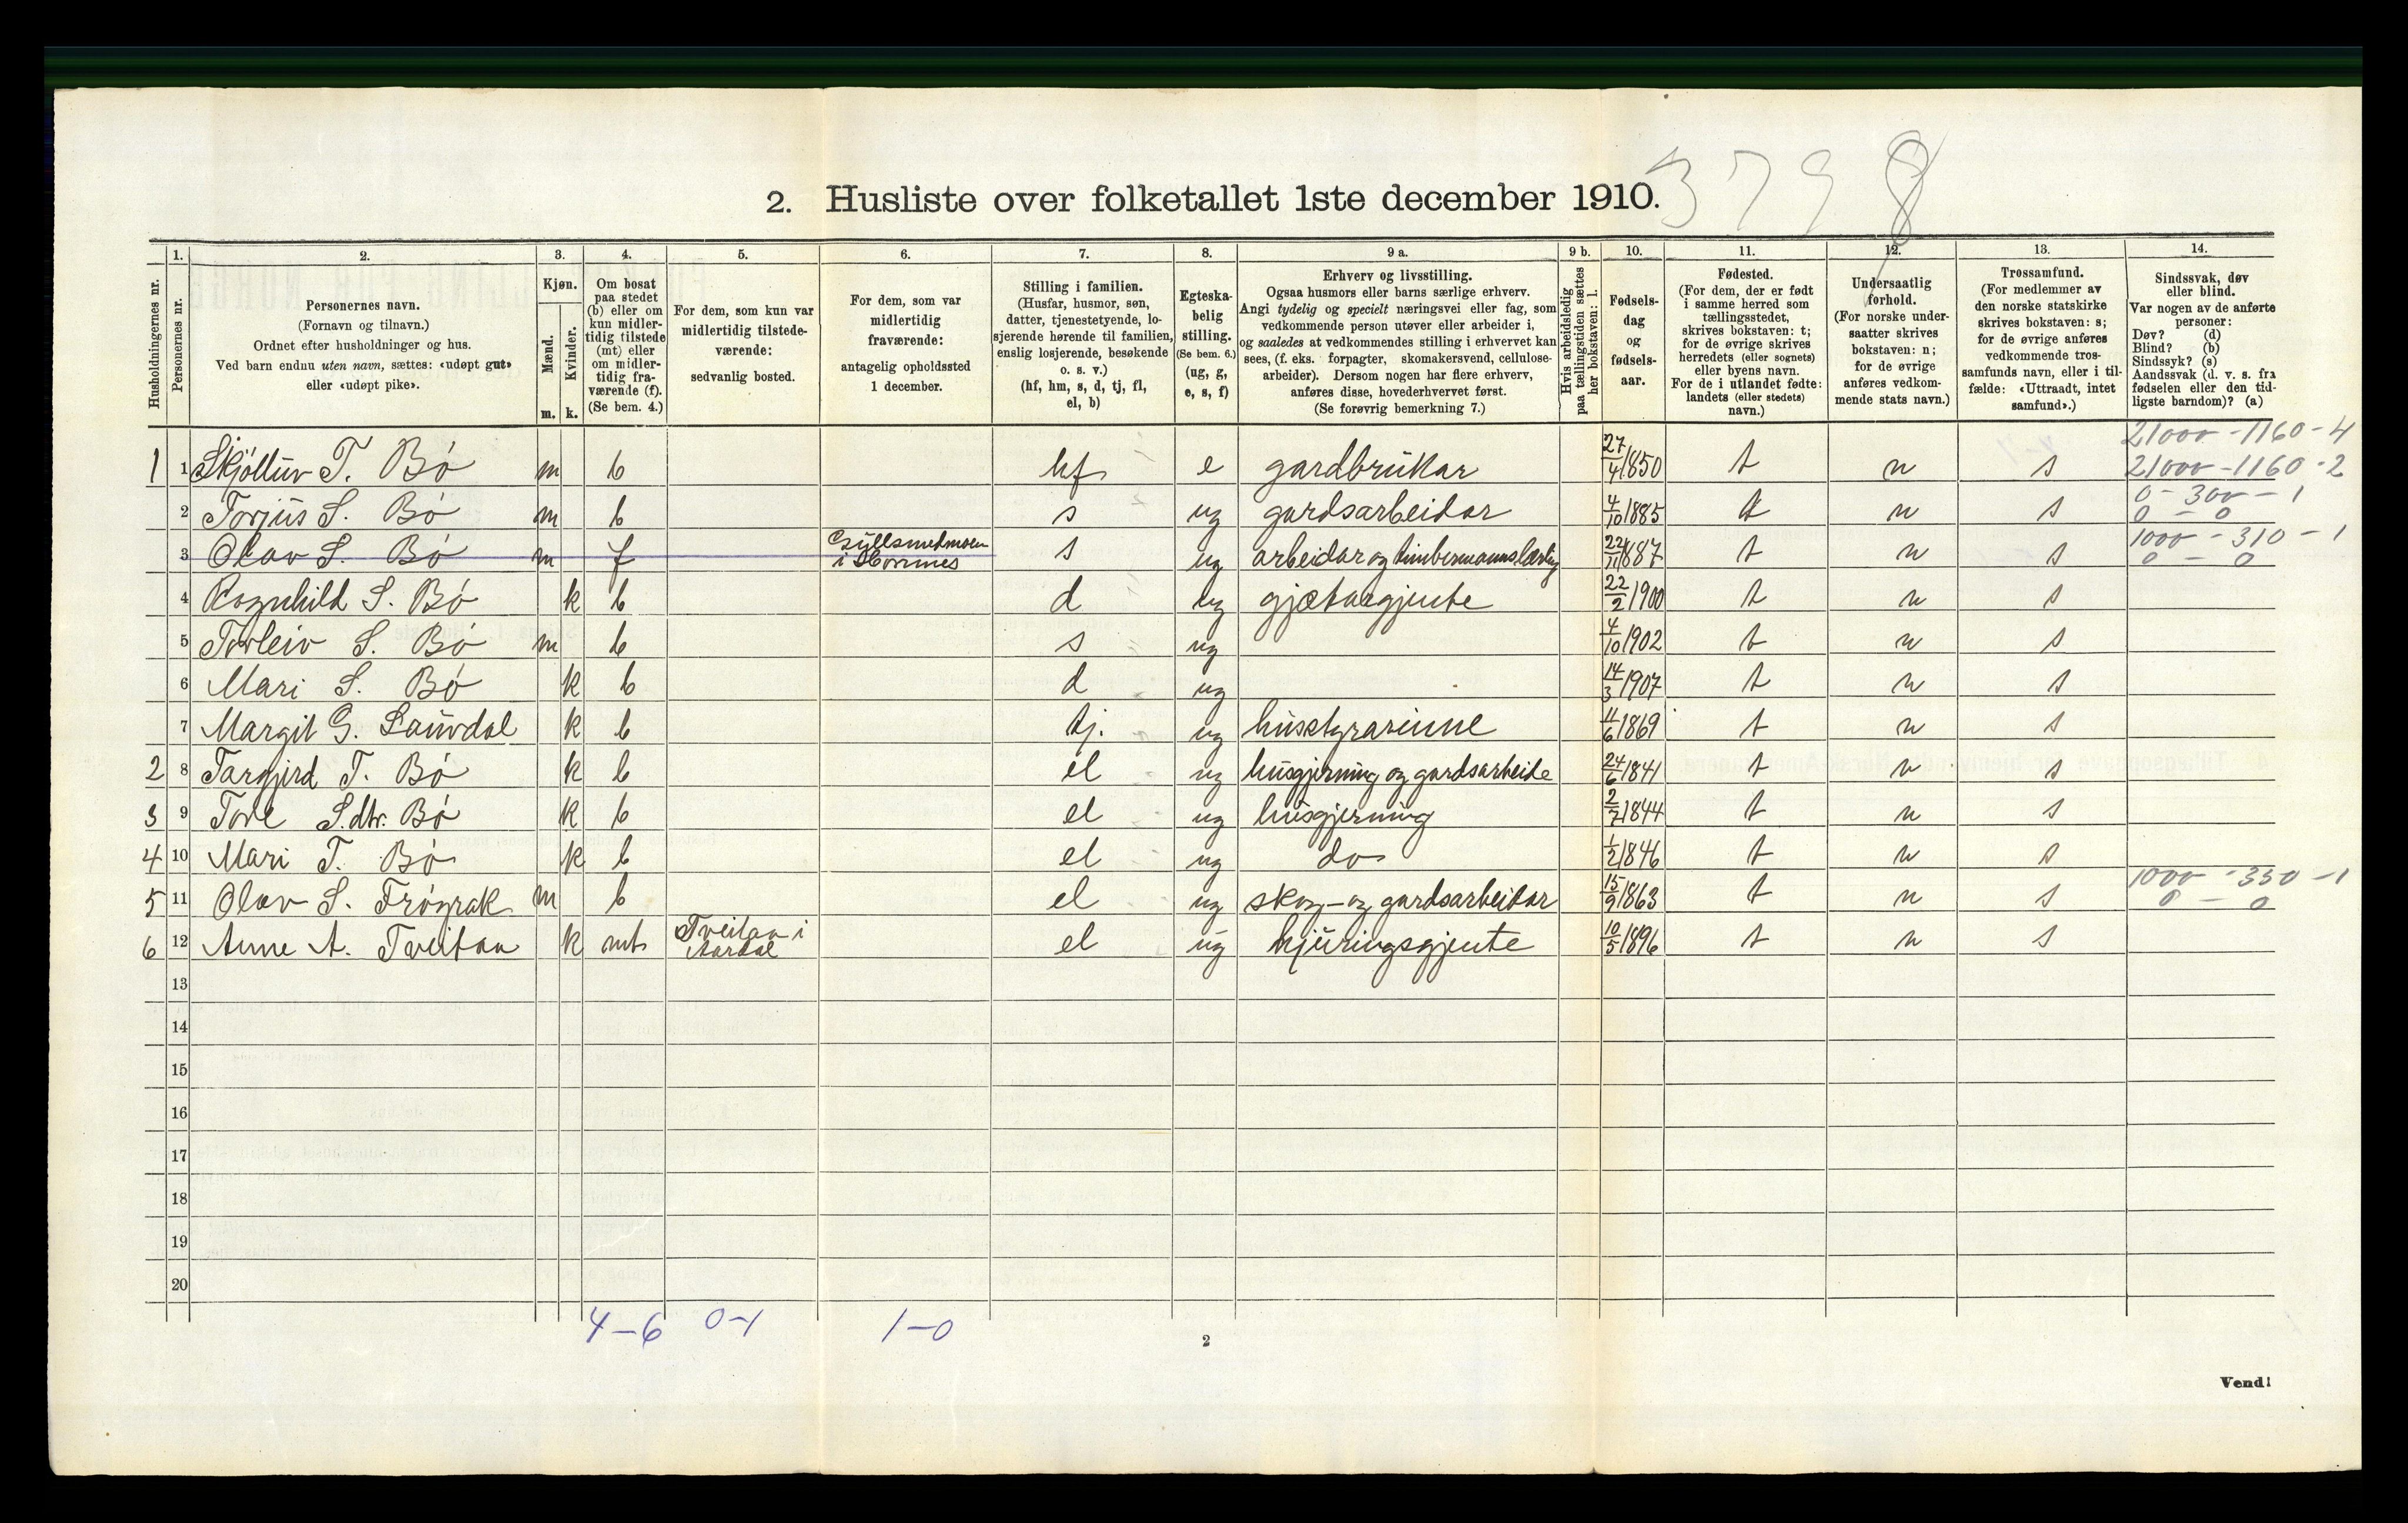 3798
2. Husliste over folketallet 1ste december 1910.
Husholdningernes nr.
1. Personernes nr.
2. Personernes navn.
(Fornavn og tilnavn.)
Ordnet efter husholdninger og hus.
Ved barn endnu uten navn, sættes: «udøpt gut»
eller «udøpt pike».
3. Kjøn.
Mænd. m.
Kvinder. k.
4. Om bosat
paa stedet
(b) eller om
kun midler-
tidig tilstede
(mt) eller
om midler-
tidig fra-
værende (f).
(Se bem. 4.)
5. For dem, som kun var
midlertidig tilstede-
værende:
sedvanlig bosted.
6. For dem, som var
midlertidig
fraværende:
antagelig opholdssted
1 december.
7. Stilling i familien.
(Husfar, husmor, søn,
datter, tjenestetyende, lo-
sjerende hørende til familien,
enslig losjerende, besøkende
o. s. v.)
(hf, hm, s, d, tj, fl,
el, b)
8. Egteska-
belig
stilling.
(Se bem. 6.)
(ug, g,
e, s, f)
9 a. Erhverv og livsstilling.
Ogsaa husmors eller barns særlige erhverv.
Angi tydelig og specielt næringsvei eller fag, som
vedkommende person utøver eller arbeider i,
og saaledes at vedkommendes stilling i erhvervet kan
sees, (f. eks. forpagter, skomakersvend, cellulose-
arbeider). Dersom nogen har flere erhverv,
anføres disse, hovederhvervet først.
(Se forøvrig bemerkning 7.)
9 b. Hvis arbeidsledig
paa tællingstiden sættes
her bokstaven: l.
10. Fødsels-
dag
og
fødsels-
aar.
11. Fødested.
(For dem, der er født
i samme herred som
tællingsstedet,
skrives bokstaven: t;
for de øvrige skrives
herredets (eller sognets)
eller byens navn.
For de i utlandet fødte:
landets (eller stedets)
navn.)
12. Undersaatlig
forhold.
(For norske under-
saatter skrives
bokstaven: n;
for de øvrige
anføres vedkom-
mende stats navn.)
13. Trossamfund.
(For medlemmer av
den norske statskirke
skrives bokstaven: s;
for de øvrige anføres
vedkommende tros-
samfunds navn, eller i til-
fælde: «Uttraadt, intet
samfund».)
14. Sindssvak, døv
eller blind.
Var nogen av de anførte
personer:
Døv? (d)
Blind? (b)
Sindssyk? (s)
Aandssvak (d. v. s. fra
fødselen eller den tid-
ligste barndom)? (a)
1 1 Skjölluv T. Bö m b hf e gardbrukar 27/4 1850 t n s 21000 - 1160 - 4
21000 - 1160 - 2
2 Torjus S. Bö m b s ug gardsarbeidar 4/10 1885 t n s 0 - 300 - 1
0 - 0
3 Olav S. Bö m f Gullsmedmoen
i Hornnes s ug arbeidar og timbermannslærling 22/11 1887 t n s 1000 - 310 - 1
0 - 0
4 Rognhild S. Bö k b d ug gjætargjente 22/2 1900 t n s
5 Torleiv S. Bö m b s ug 4/10 1902 t n s
6 Mari S. Bö k b d ug 14/3 1907 t n s
7 Margit G. Lauvdal k b tj. ug husstyrarinne 11/6 1869 t n s
2 8 Targjerd T. Bö k b el ug husgjerning og gardsarbeide 24/6 1841 t n s
3 9 Tone S.dtr. Bö k b el ug husgjerning 2/7 1844 t n s
4 10 Mari T. Bö k b el ug do 1/2 1846 t n s
5 11 Olav S. Fröyrak m b el ug skog- og gardsarbeidar 15/9 1863 t n s 1000 - 350 - 1
0 - 0
6 12 Anne A. Tveitan k mt Tveitan i
Aardal el ug hjuringsgjente 10/5 1896 t n s
13
14
15
16
17
18
19
20
4-6 0-1 1-0
2
Vend!